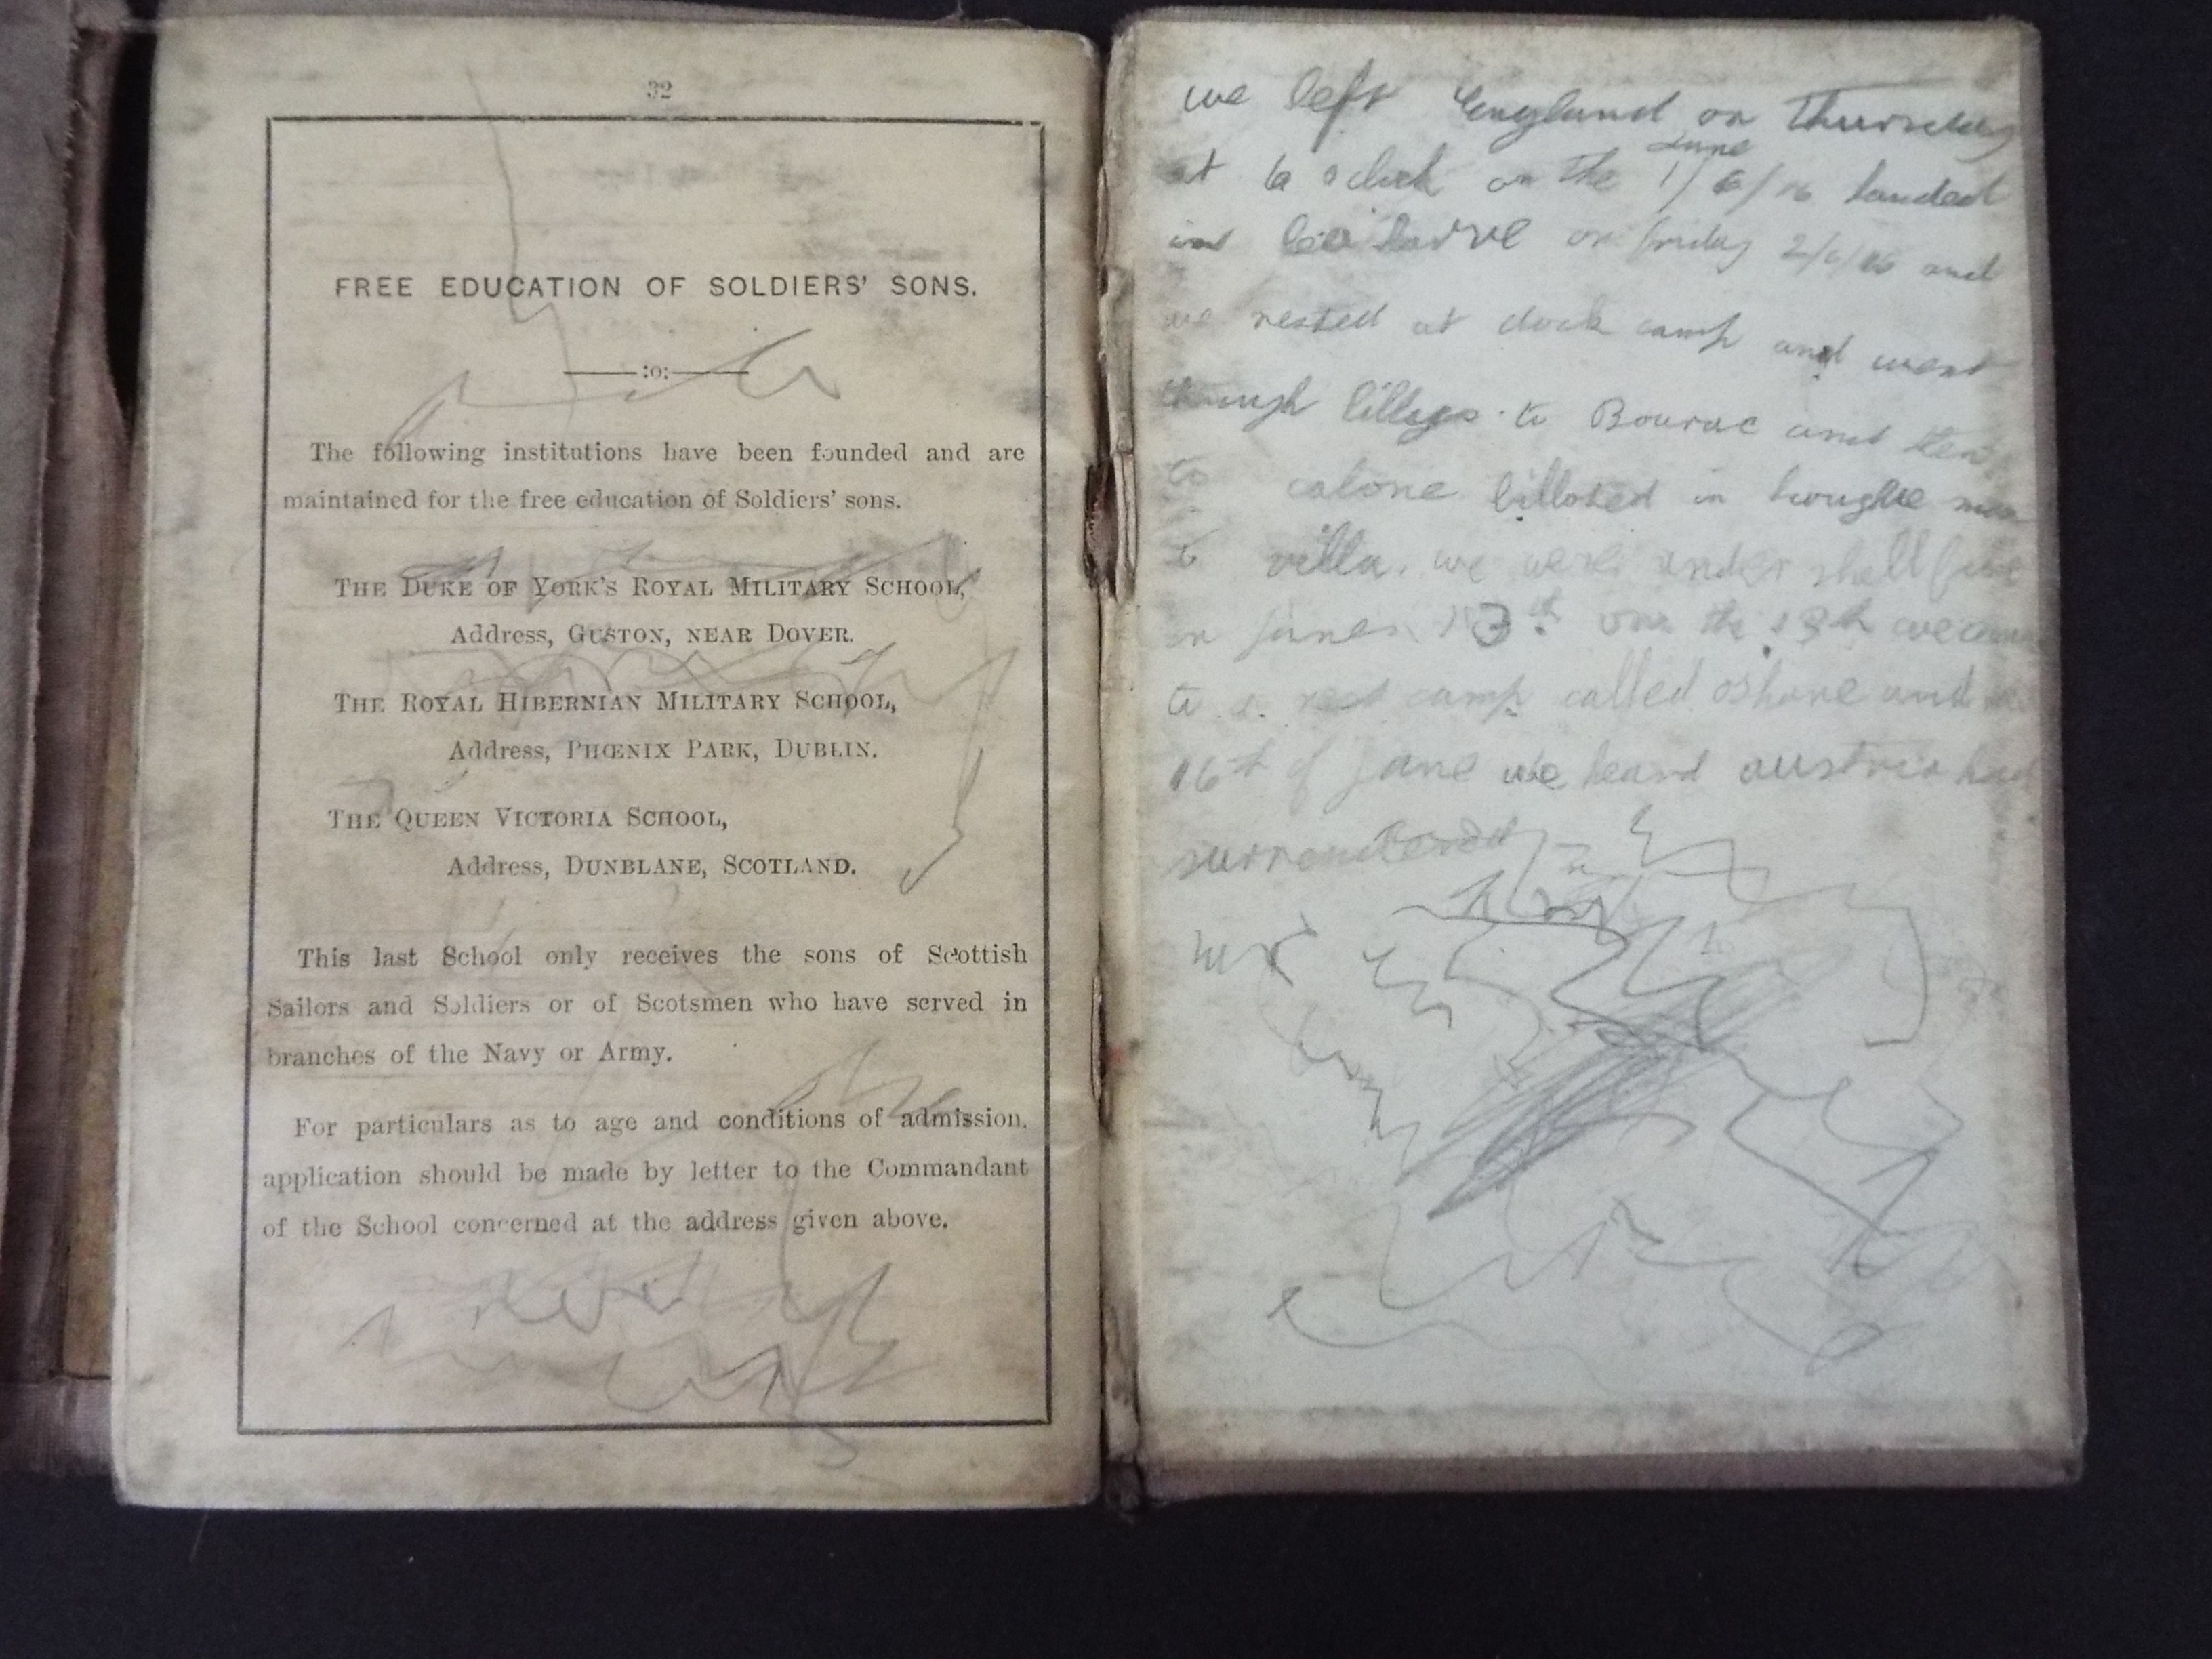 32
FREE EDUCATION OF SOLDIERS' SONS.
:o:
The following institutions have been founded and are
maintained for the free education of Soldiers' sons.
THE DUKE OF YORK'S ROYAL MILITARY SCHOOL,
Address, GUSTON, NEAR DOVER.
THE ROYAL HIBERNIAN MILITARY SCHOOL,
Address, PHŒNIX PARK, DUBLIN.
THE QUEEN VICTORIA SCHOOL,
Address, DUNBLANE, SCOTLAND.
This last School only receives the sons of Scottish
Sailors and Soldiers or of Scotsmen who have served in
branches of the Navy or Army.
For particulars as to age and conditions of admission,
application should be made by letter to the Commandant
of the School concerned at the address given above.
we left England on Thursday
June
at 6 o clock on the 1/6/16 landed
in on friday 2/6/16 and
we rested at dock camp and went
through to and then
to calone billoted in
villa. we were under shell fire
on june 13th on the we came
to a rest camp called and
16th of june we heard austria had
surrendered